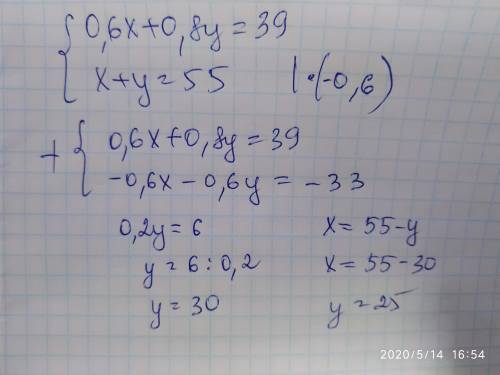 0,6x+0,8y=39
x+y=55 | •(-0,6)
+ 0,6x+0,8y=39
-0,6x-0,6y=-33
0,2y=6
y=6:0,2
y=30
x=55-y
x=55-30
y=25
2020/5/14 16:54